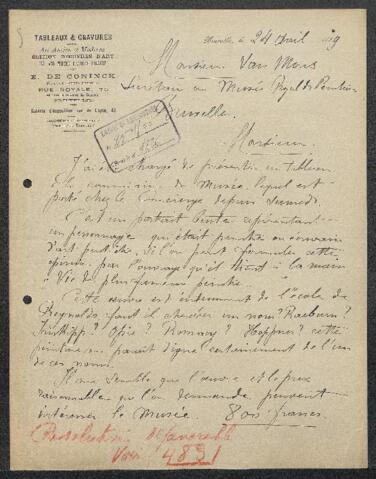 TABLEAUX & GRAVURES
Art Ancien & Moderne
E. DE CONINCK
RUE ROYALE,
Bruxelles, le 24 Avril 19
Monsieur Van Mons
Secrétaire au Musée Royal de Peinture
Bruxelles
Monsieur
J'ai été chargé de présenter un tableau
à la commission du Musée lequel est
porté chez le Concierge depuis Samedi
C'est un portrait peinte représentant
un personnage qui était peintre ou écrivain
d'art peut-être si l'on peut formuler cette
opinion par l'ouvrage qu'il tient à la main
"Vie de plusieurs peintres
Cette œuvre est évidemment de l'école de
Reynolds faut il chercher un nom? Raeburn?
Opie? Romney? Hoppner? cette
peinture me paraît digne certainement de l'un
de ces noms.
Il me semble que l'œuvre et le prix
raisonnable que l'on demande peuvent
intéresser le Musée. 800 francs
Résolution défavorable
Voir 4821